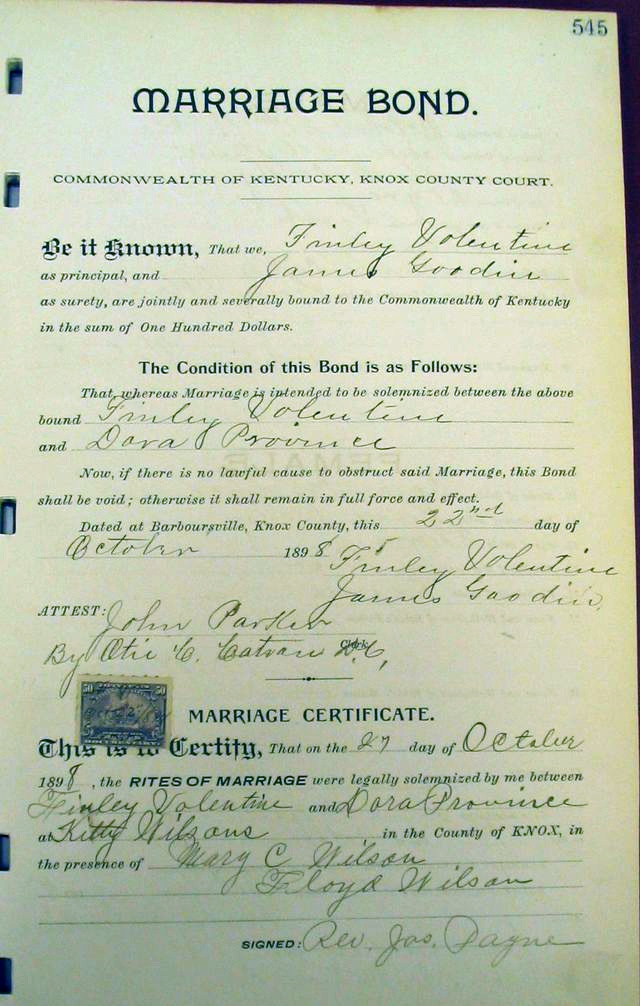 545
MARRIAGE BOND.
COMMONWEALTH OF KENTUCKY, KNOX COUNTY COURT.
Be it Known, That we, Finley Volentine
as principal, and James Goodin
as surety, are jointly and severally bound to the Commonwealth of Kentucky
in the sum of One Hundred Dollars.
The Condition of this Bond is as Follows:
That, whereas Marriage is intended to be solemnized between the above
bound Finley Volentine
and Dora Province
Now, if there is no lawful cause to obstruct said Marriage, this Bond
shall be void; otherwise it shall remain in full force and effect.
Dated at Barboursville, Knox County, this 22nd day of
October 1898
Finley Volentine
James Goodin
ATTEST: John Parker
By Otie C. Catron D.C. Clerk
50 50
MARRIAGE CERTIFICATE.
This is to Certify, That on the 27 day of October
1898, the RITES OF MARRIAGE were legally solemnized by me between
Finley Volentine and Dora Province
at Kitty Wilsons, in the County of KNOX, in
the presence of Mary C Wilson
Floyd Wilson
SIGNED: Rev. Jas. Payne